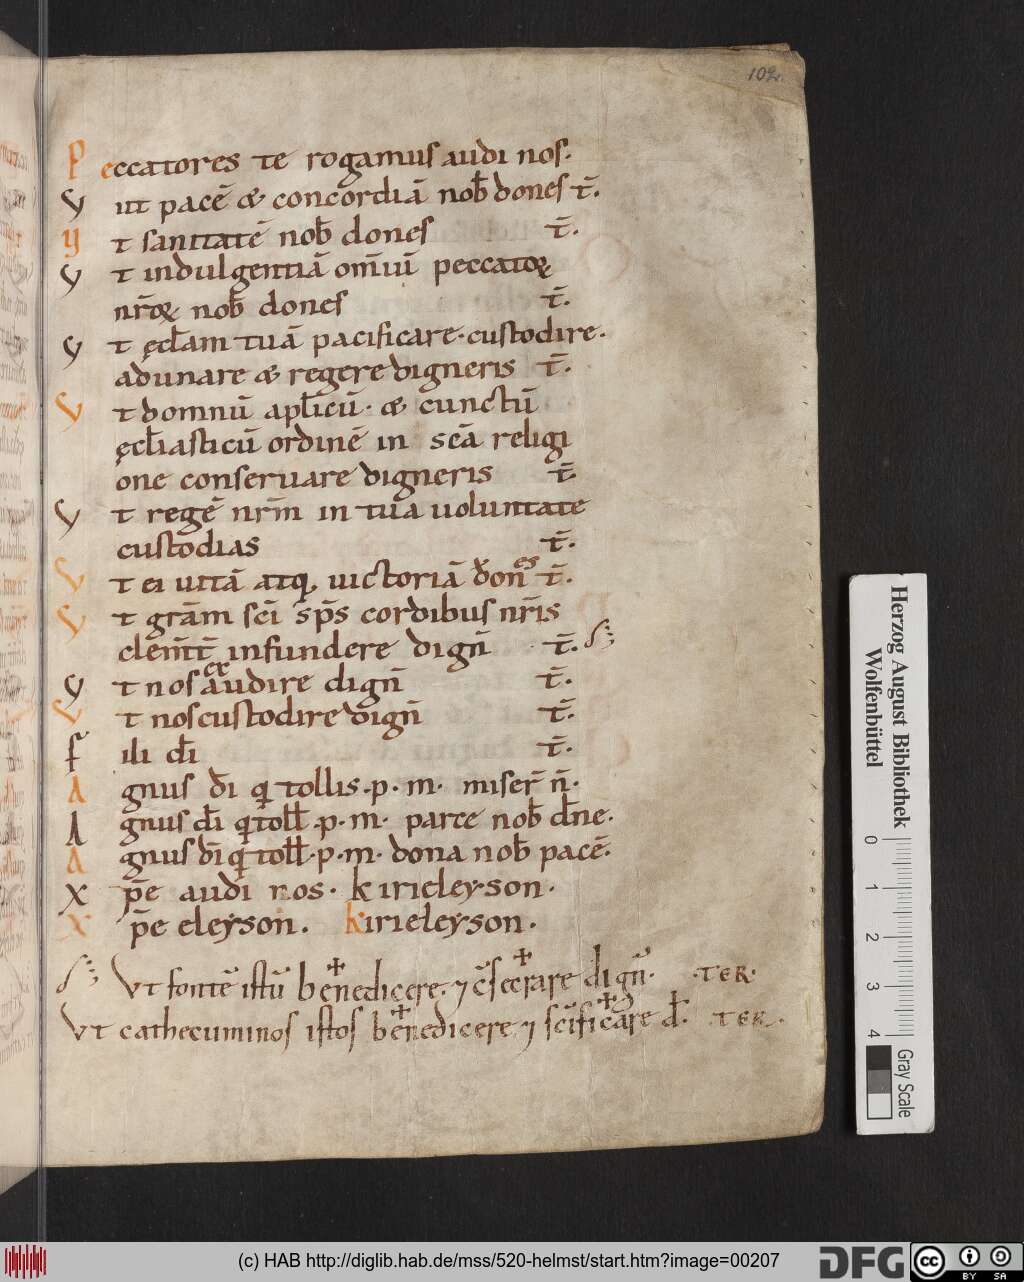 102.
Peccatores te rogamus audi nos.
Vut pacē & concordiā nob̄ dones t̄.
Vt sanitatē nob̄ dones t̄.
Vt indulgentiā om̄iū peccatoꝝ
nr̄oꝝ nob̄ dones t̄.
Vt ęcl̄am tuā pacificare. custodire.
adunare & regere digneris t̄.
Vt domnū apl̄icū. & cunctū
ęcl̄iasticū ordinē in scā religi
one conseruare digneris t̄.
Vt regē nrm̄ in tua uoluntate
custodias t̄.
Vt ei uitā atq; uictoriā dones t̄.
Vt gr̄am sc̄i sp̄s cordibus nr̄is
clem̄t̄ infundere dign̄ t̄.
Vt nos exaudire dign̄ t̄.
Vt nos custodire dign̄ t̄.
fili d̄i t̄.
Agnus d̄i qi tollis. p. m. miser̄ n̄.
Agnus d̄i qi toll̄. p. m. parce nob̄ d̄ne.
Agnus d̄i qi toll̄. p. m. dona nob̄ pacē.
xp̄e audi nos. kirieleyson.
xp̄e eleyson. kirieleyson.
Vt fontē istū be✝nedicere. ⁊ c̄se✝crare dign̄. .TER.
Vt cathecuminos istos be✝nedicere ⁊ sc̄ifi✝care d̄. .TER.
Herzog August Bibliothek
Wolfenbüttel
0 1 2 3 4
Gray Scale
(c) HAB http://diglib.hab.de/mss/520-helmst/start.htm?image=00207
DFG
cc BY SA